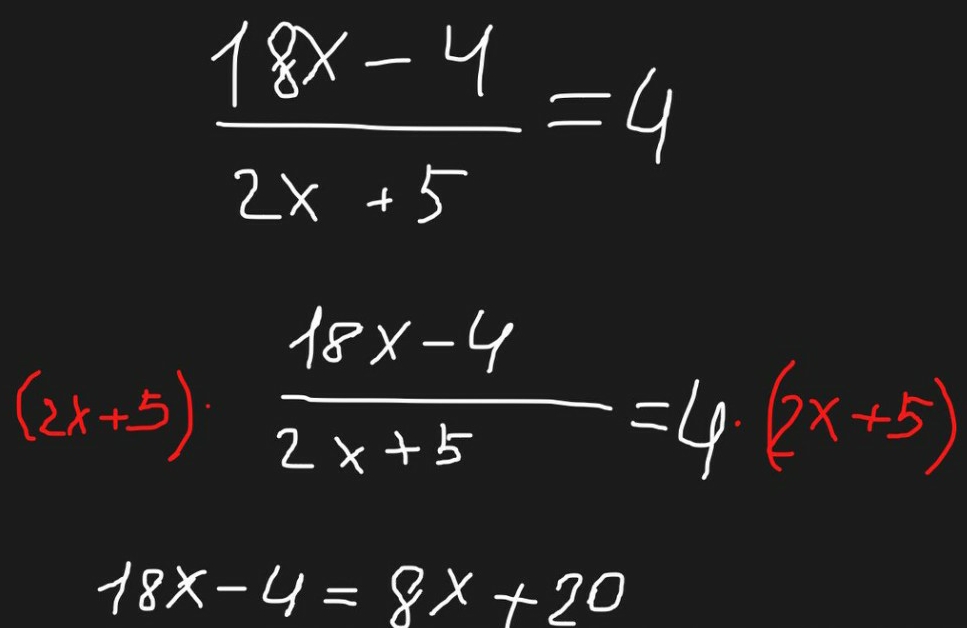 18x - 4
2x + 5
= 4
(2x+5) · 18x - 4
2x + 5
= 4 · (2x+5)
18x - 4 = 8x + 20